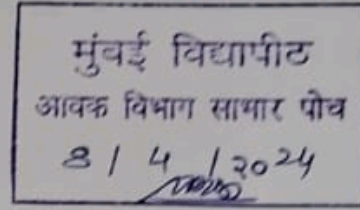 मुंबई विद्यापीठ
आवक विभाग साभार पोच
8 / 4 / २०२४